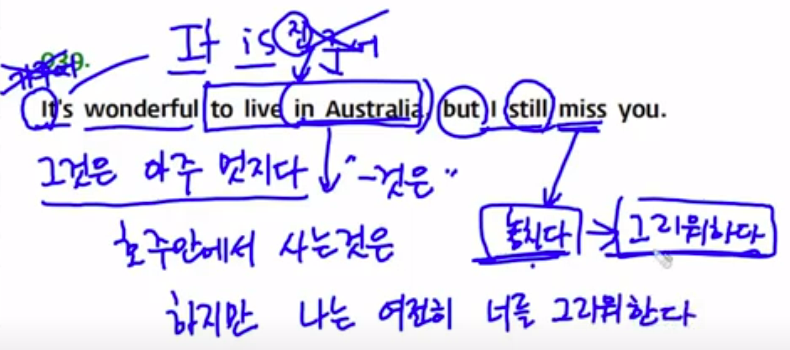 It is 진주어
030.
It's wonderful to live in Australia, but I still miss you.
그것은 아주 멋지다 "~것은"
호주안에서 사는것은 놓친다 → 그리워하다
하지만 나는 여전히 너를 그리워한다